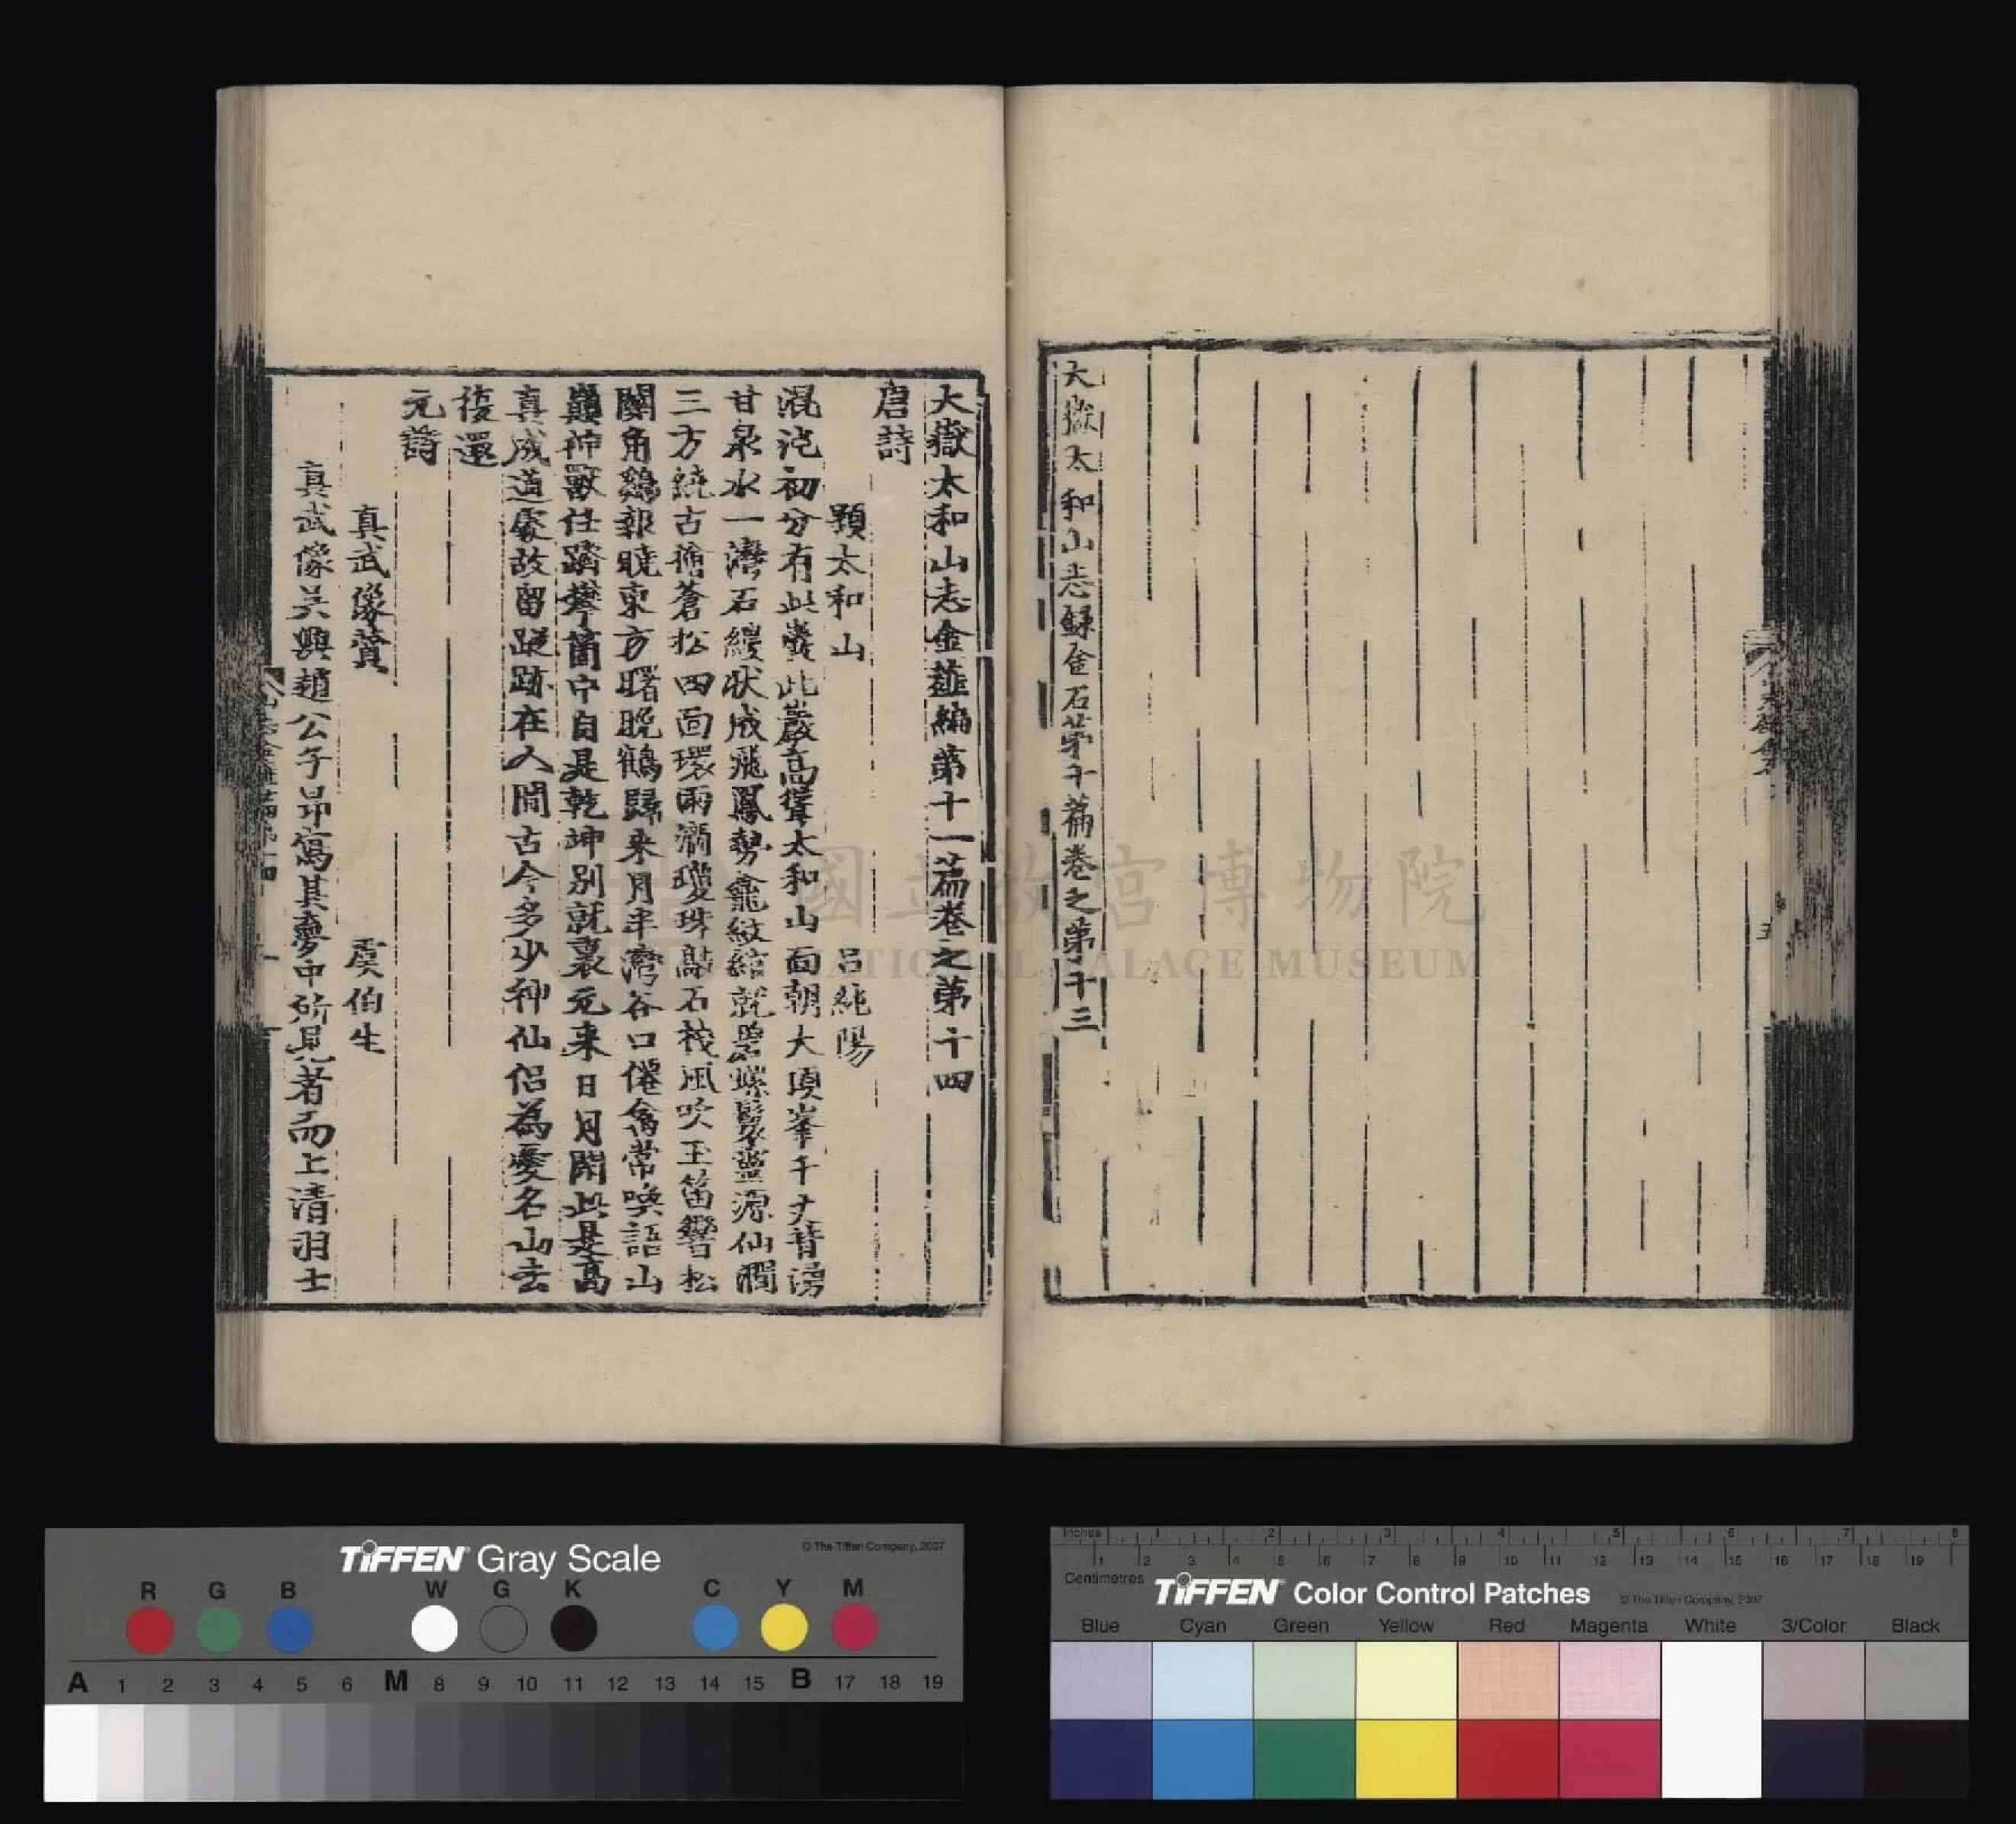 大嶽太和山志録金石第十篇卷之第十三
大嶽太和山志金薤編第十一篇卷之第十四
唐詩
題太和山 呂純陽
混沌初分有此巖此巖高聳太和山面朝大頂峯千丈背湧
甘泉水一灣石縷狀成飛鳳勢龕紋綰就碧螺鬟靈源仙澗
三方繞古檜蒼松四面環雨滴瓊珠敲石棧風吹玉笛響松
關角鷄報曉東方曙晚鶴歸來月半灣谷口僊禽常喚語山
巔神獸任躋攀箇中自是乾坤別就裏元来日月閑此是高
真成道處故留蹤跡在人間古今多少神仙侶為愛名山去
復還
元詩
真武像贊 虞伯生
真武像吳興趙公子昂寫其夢中所見者而上清羽士
國立故宮博物院
NATIONAL PALACE MUSEUM
TIFFEN Gray Scale
© The Tiffen Company, 2007
R G B W G K C Y M
A 1 2 3 4 5 6 M 8 9 10 11 12 13 14 15 B 17 18 19
Inches 1 2 3 4 5 6 7 8
1 2 3 4 5 6 7 8 9 10 11 12 13 14 15 16 17 18 19
Centimetres
TIFFEN Color Control Patches
© The Tiffen Company, 2007
Blue Cyan Green Yellow Red Magenta White 3/Color Black